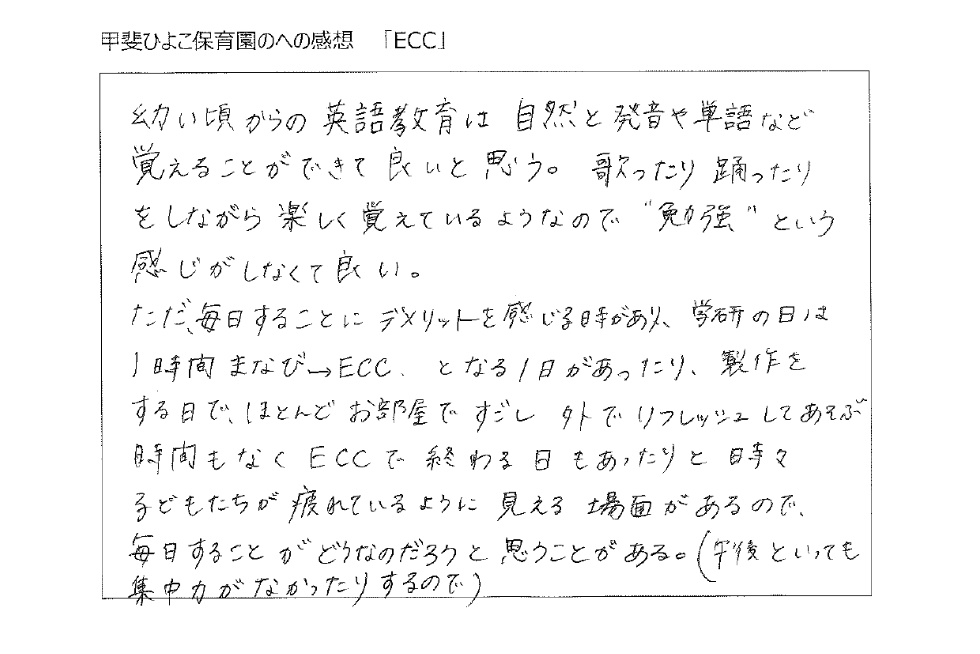 甲斐ひよこ保育園のへの感想 「ECC」
幼い頃からの英語教育は 自然と発音や単語など
覚えることができて良いと思う。歌ったり踊ったり
をしながら楽しく覚えているようなので“勉強”という
感じがしなくて良い。
ただ、毎日することにデメリットを感じる時があり、学研の日は
1時間まなび→ECC、となる1日があったり、製作を
する日で、ほとんどお部屋ですごし 外でリフレッシュしてあそぶ
時間もなくECCで終わる日もあったりと時々
子どもたちが疲れているように見える場面があるので、
毎日することがどうなのだろうと思うことがある。(午後といっても
集中力がなかったりするので)